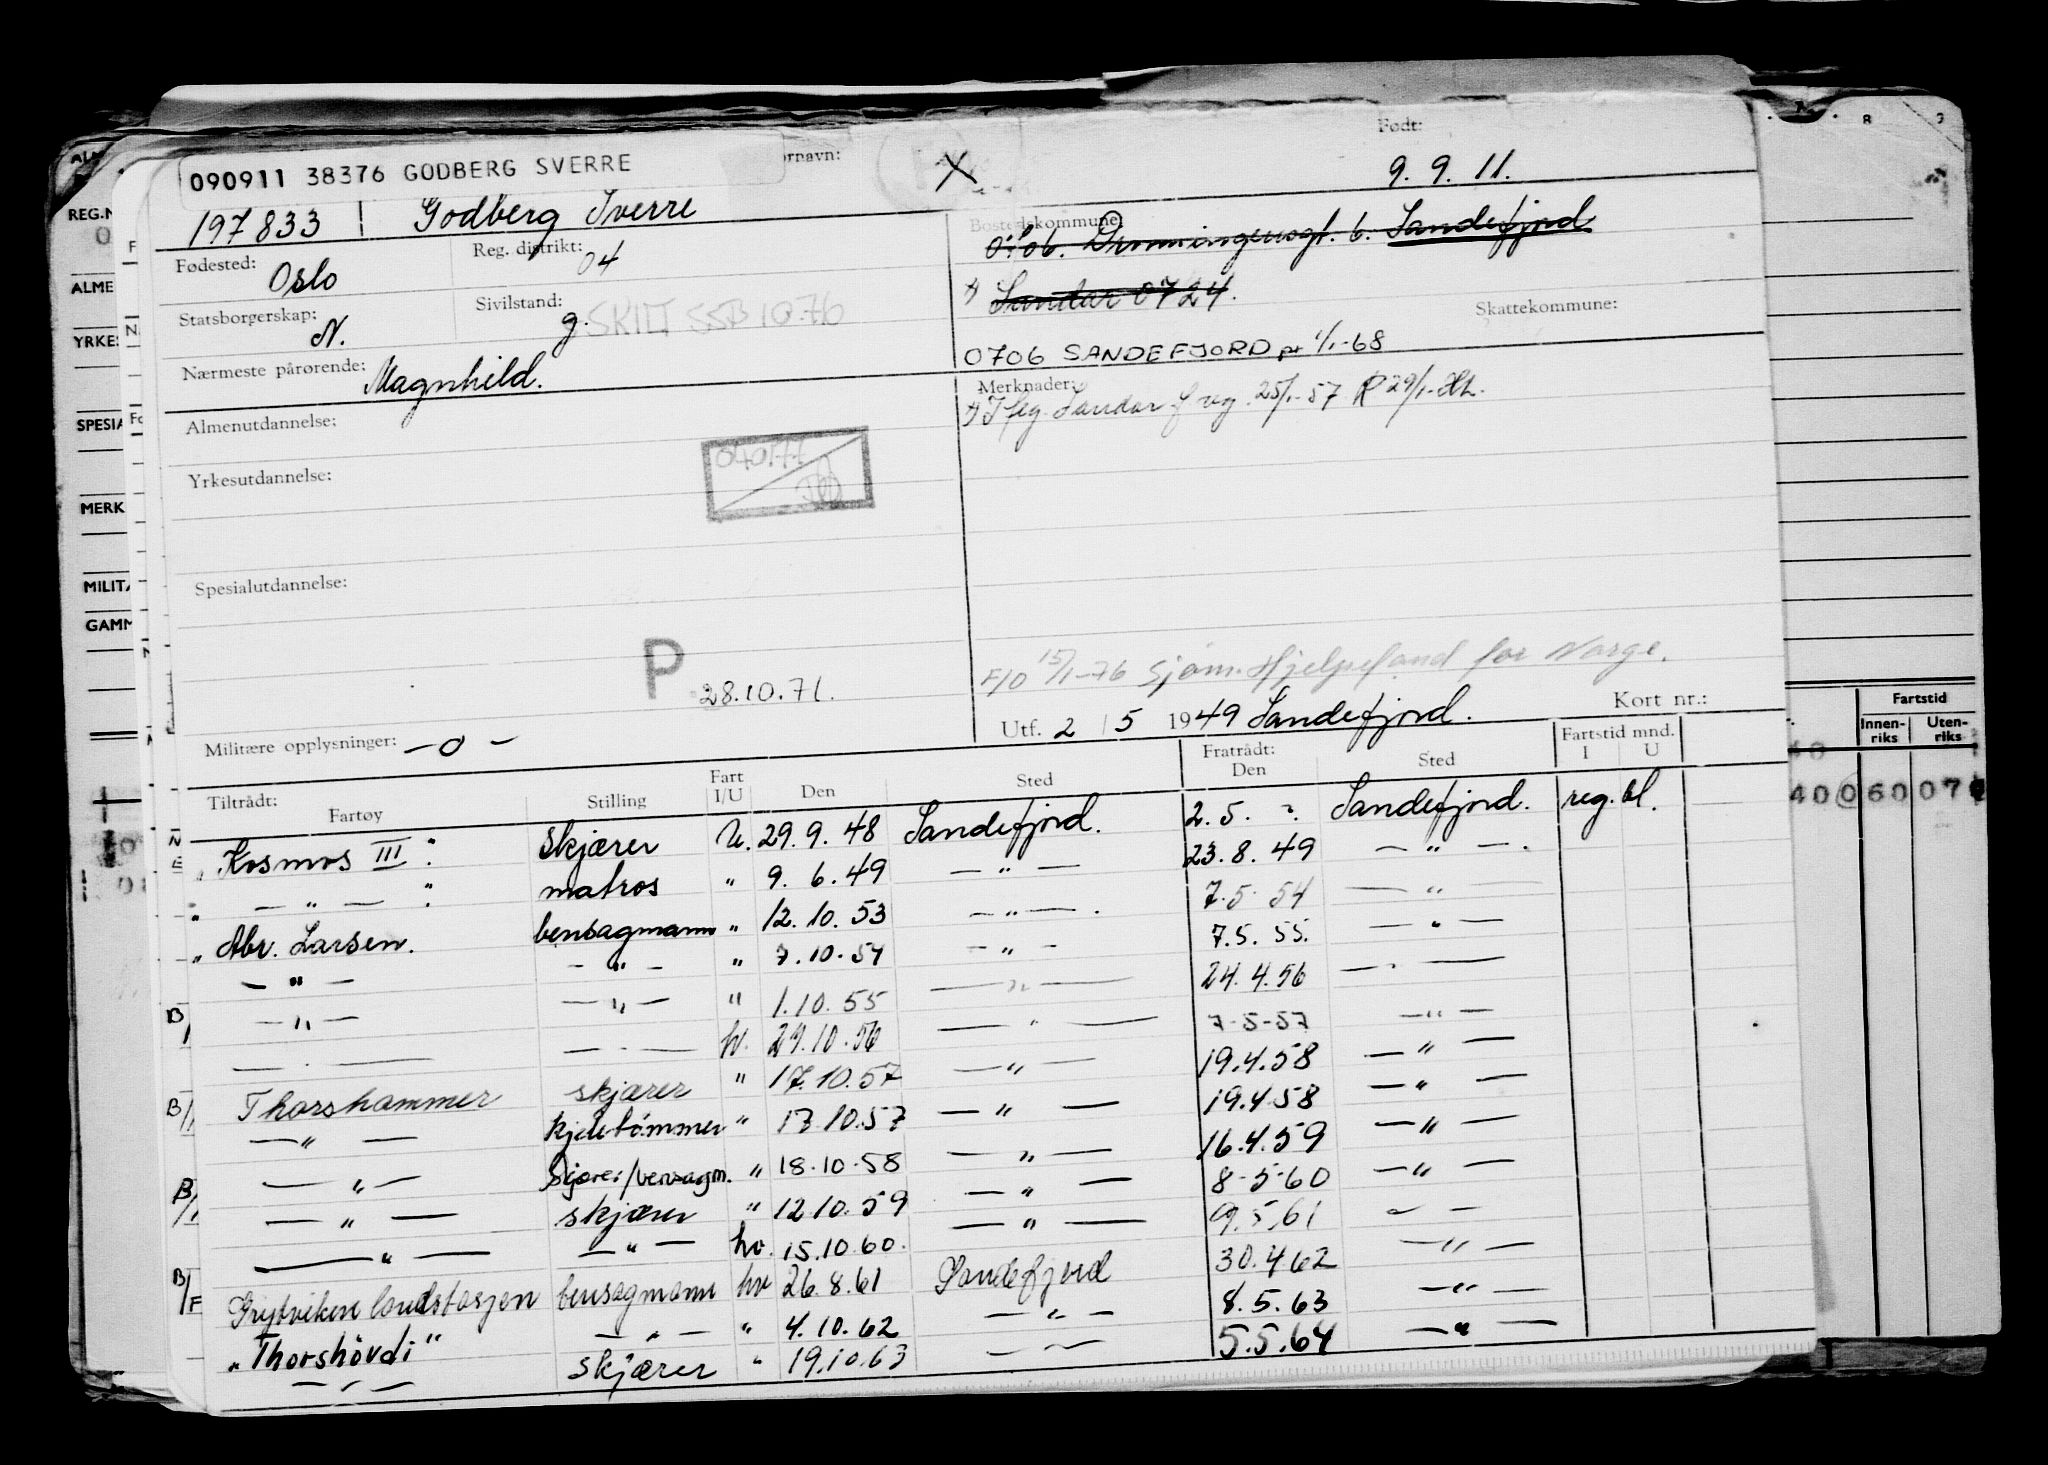 090911 38376 GODBERG SVERRE
ornavn:
X
Født:
9. 9. 11.
197833 Godberg Sverre
Bostedskommune:
0706. Dronningensgt. 6. Sandefjord
Fødested: Oslo
Reg. distrikt: 04
x) Sandar 0724.
Statsborgerskap: N.
Sivilstand: g.
SKILT SSB 1076
Skattekommune:
0706 SANDEFJORD pr 1/1-68
Nærmeste pårørende: Magnhild.
Merknader:
x) Sandar f vg. 25/1-57 R 29/1-
Almenutdannelse:
040177
Yrkesutdannelse:
Spesialutdannelse:
P 28.10.71.
F/O 15/1-76 Sjøm. Hjelpefond for Norge.
Utf. 2 / 5 1949 Sandefjord.
Kort nr.:
Militære opplysninger: – 0 –
Tiltrådt: Fartøy Stilling Fart I/U Den Sted Fratrådt: Den Sted Fartstid mnd. I U
Kosmos III skjærer U. 29.9.48 Sandefjord. 2.5. Sandefjord. reg. bl.
— " — matros " 9.6.49 — " — 23.8.49 — " — .
Abr. Larsen. bensagmann " 12.10.53 — " — . 7.5.54 — " —
— " — — " — " 7.10.54 — " — 7.5.55. — " —
B/ — " — — " — " 1.10.55 — " — 24.4.56 — " —
— " — — " — hv. 29.10.56 — " — 7-5-57 — " —
B/ Thorshammer skjærer " 17.10.57 — " — 19.4.58 — " —
— " — kjeletømmer " 17.10.57 — " — 19.4.58 — " —
— " — Skjærer/bensagm. " 18.10.58 — " — 16.4.59 — " —
B/ — " — skjærer " 12.10.59 — " — 8-5-60 — " —
— " — — " — hv. 15.10.60. — " — 9.5.61 — " —
B/F Grytviken landstasjon bensagmann hv 26.8.61 Sandefjord 30.4.62 — " —
"Thorshövdi" — " — " 4.10.62 — " — 8.5.63 — " —
— " — skjærer " 19.10.63 — " — 5.5.64 — " —
REG.N
ALME
YRKES
SPESIA
MERK
MILITÆ
GAMM
Fartstid
Innenriks Utenriks
40 060 07